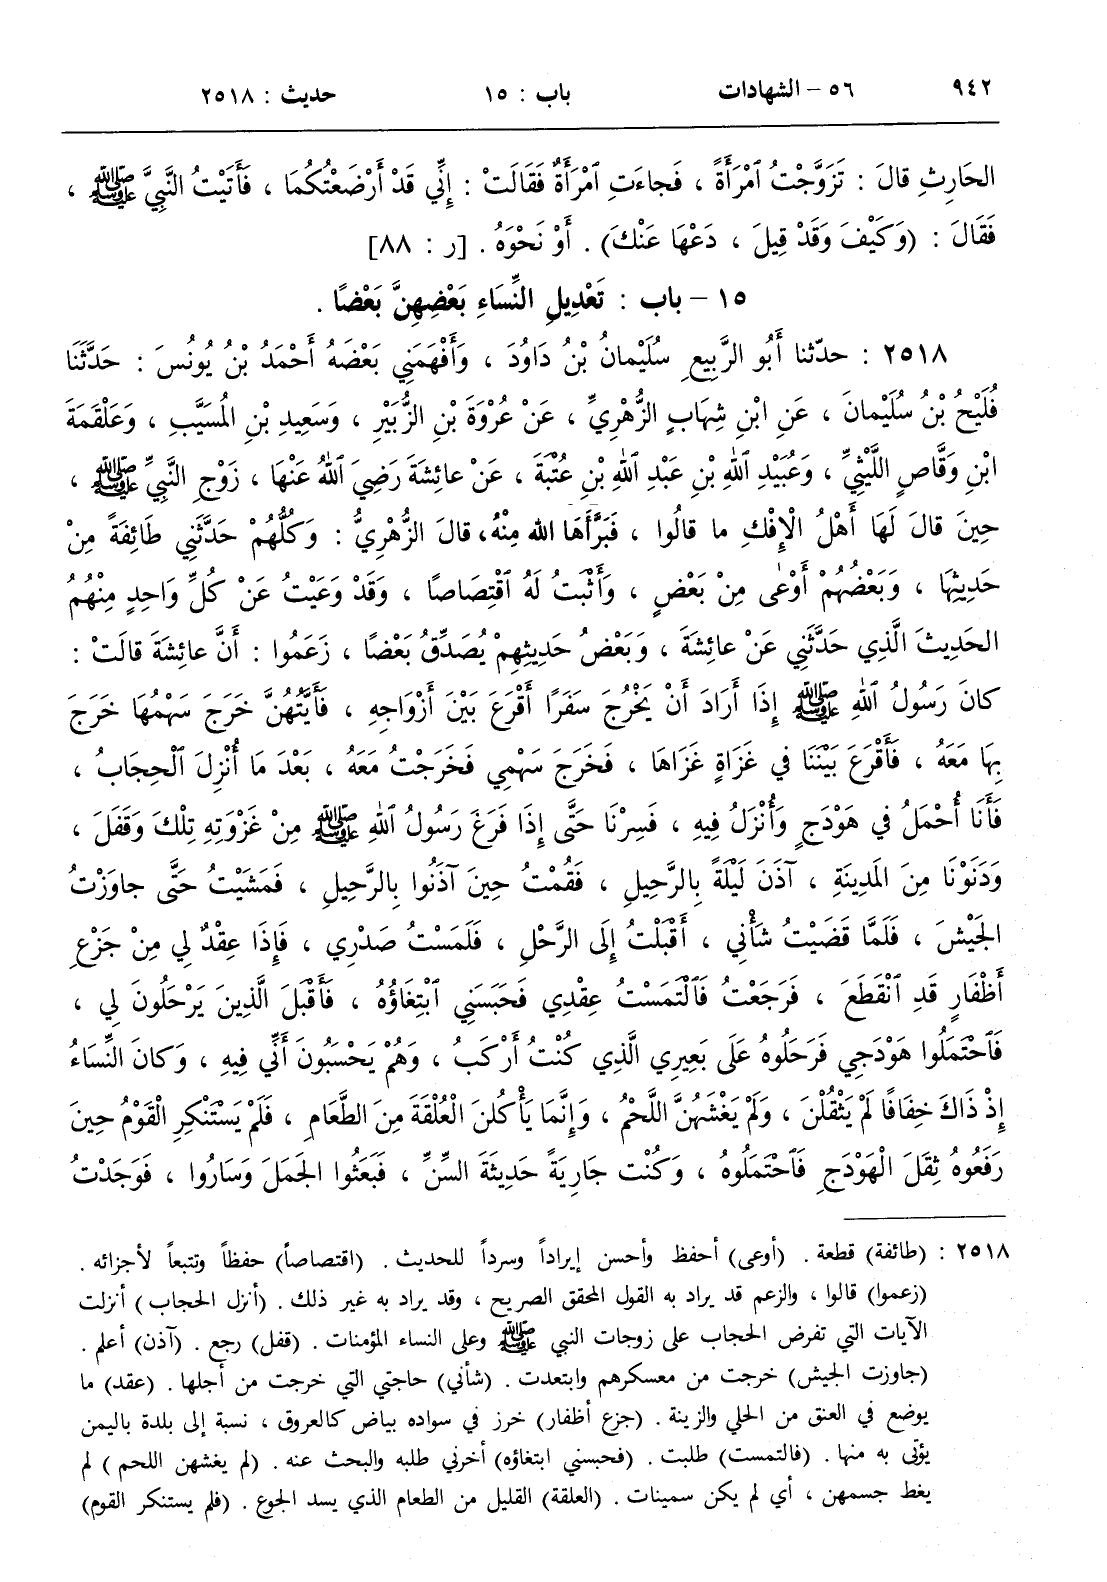 ٩٤٢ ٥٦ – الشهادات باب : ١٥ حديث : ٢٥١٨
الحَارِثِ قالَ : تَزَوَّجْتُ ٱمْرَأَةً ، فَجاءَتِ ٱمْرَأَةٌ فَقَالَتْ : إِنِّي قَدْ أَرْضَعْتُكُمَا ، فَأَتَيْتُ النَّبِيَّ ﷺ ،
فَقَالَ : (وَكَيْفَ وَقَدْ قِيلَ ، دَعْهَا عَنْكَ) . أَوْ نَحْوَهُ . [ر : ٨٨]
١٥ – باب : تَعْدِيلِ النِّسَاءِ بَعْضِهِنَّ بَعْضًا .
٢٥١٨ : حدّثنا أَبُو الرَّبِيعِ سُلَيْمانُ بْنُ دَاوُدَ ، وَأَفْهَمَنِي بَعْضَهُ أَحْمَدُ بْنُ يُونُسَ : حَدَّثَنَا
فُلَيْحُ بْنُ سُلَيْمانَ ، عَنِ ابْنِ شِهَابٍ الزُّهْرِيِّ ، عَنْ عُرْوَةَ بْنِ الزُّبَيْرِ ، وَسَعِيدِ بْنِ المُسَيَّبِ ، وَعَلْقَمَةَ
ابْنِ وَقَّاصٍ اللَّيْثِيِّ ، وَعُبَيْدِ ٱللهِ بْنِ عَبْدِ ٱللهِ بْنِ عُتْبَةَ ، عَنْ عائِشَةَ رَضِيَ ٱللهُ عَنْهَا ، زَوْجِ النَّبِيِّ ﷺ ،
حِينَ قالَ لَهَا أَهْلُ الْإِفْكِ ما قالُوا ، فَبَرَّأَهَا الله مِنْهُ، قالَ الزُّهْرِيُّ : وَكُلُّهُمْ حَدَّثَنِي طَائِفَةً مِنْ
حَدِيثِهَا ، وَبَعْضُهُمْ أَوْعٰى مِنْ بَعْضٍ ، وَأَثْبَتُ لَهُ ٱقْتِصَاصًا ، وَقَدْ وَعَيْتُ عَنْ كُلِّ وَاحِدٍ مِنْهُمُ
الحَدِيثَ الَّذِي حَدَّثَنِي عَنْ عائِشَةَ ، وَبَعْضُ حَدِيثِهِمْ يُصَدِّقُ بَعْضًا ، زَعَمُوا : أَنَّ عائِشَةَ قالَتْ :
كانَ رَسُولُ ٱللهِ ﷺ إِذَا أَرَادَ أَنْ يَخْرُجَ سَفَرًا أَقْرَعَ بَيْنَ أَزْوَاجِهِ ، فَأَيَّتُهُنَّ خَرَجَ سَهْمُهَا خَرَجَ
بِهَا مَعَهُ ، فَأَقْرَعَ بَيْنَنَا فِي غَزَاةٍ غَزَاهَا ، فَخَرَجَ سَهْمِي فَخَرَجْتُ مَعَهُ ، بَعْدَ مَا أُنْزِلَ ٱلْحِجَابُ ،
فَأَنَا أُحْمَلُ فِي هَوْدَجٍ وَأُنْزَلُ فِيهِ ، فَسِرْنَا حَتَّى إِذَا فَرَغَ رَسُولُ ٱللهِ ﷺ مِنْ غَزْوَتِهِ تِلْكَ وَقَفَلَ ،
وَدَنَوْنَا مِنَ المَدِينَةِ ، آذَنَ لَيْلَةً بِالرَّحِيلِ ، فَقُمْتُ حِينَ آذَنُوا بِالرَّحِيلِ ، فَمَشَيْتُ حَتَّى جاوَزْتُ
الجَيْشَ ، فَلَمَّا قَضَيْتُ شَأْنِي ، أَقْبَلْتُ إِلَى الرَّحْلِ ، فَلَمَسْتُ صَدْرِي ، فَإِذَا عِقْدٌ لِي مِنْ جَزْعِ
أَظْفَارٍ قَدِ ٱنْقَطَعَ ، فَرَجَعْتُ فَٱلْتَمَسْتُ عِقْدِي فَحَبَسَنِي ٱبْتِغَاؤُهُ ، فَأَقْبَلَ الَّذِينَ يَرْحَلُونَ لِي ،
فَٱحْتَمَلُوا هَوْدَجِي فَرَحَلُوهُ عَلَى بَعِيرِي الَّذِي كُنْتُ أَرْكَبُ ، وَهُمْ يَحْسَبُونَ أَنِّي فِيهِ ، وَكانَ النِّسَاءُ
إِذْ ذَاكَ خِفَافًا لَمْ يَثْقُلْنَ ، وَلَمْ يَغْشَهُنَّ اللَّحْمُ ، وَإِنَّمَا يَأْكُلْنَ الْعُلْقَةَ مِنَ الطَّعَامِ ، فَلَمْ يَسْتَنْكِرِ الْقَوْمُ حِينَ
رَفَعُوهُ ثِقَلَ الْهَوْدَجِ فَٱحْتَمَلُوهُ ، وَكُنْت جارِيَةً حَدِيثَةَ السِّنِّ ، فَبَعَثُوا الجَمَلَ وَسَارُوا ، فَوَجَدْتُ
٢٥١٨ : (طائفة) قطعة . (أوعى) أحفظ وأحسن إيراداً وسرداً للحديث . (اقتصاصاً) حفظاً وتتبعاً لأجزائه .
(زعموا) قالوا ، والزعم قد يراد به القول المحقق الصريح ، وقد يراد به غير ذلك . (أنزل الحجاب) أنزلت
الآيات التي تفرض الحجاب على زوجات النبي ﷺ وعلى النساء المؤمنات . (قفل) رجع . (آذن) أعلم .
(جاوزت الجيش) خرجت من معسكرهم وابتعدت . (شأني) حاجتي التي خرجت من أجلها . (عقد) ما
يوضع في العنق من الحلي والزينة . (جزع أظفار) خرز في سواده بياض كالعروق ، نسبة إلى بلدة باليمن
يؤتى به منها . (فالتمست) طلبت . (فحبسني ابتغاؤه) أخرني طلبه والبحث عنه . (لم يغشهن اللحم) لم
يغط جسمهن ، أي لم يكن سمينات . (العلقة) القليل من الطعام الذي يسد الجوع . (فلم يستنكر القوم)